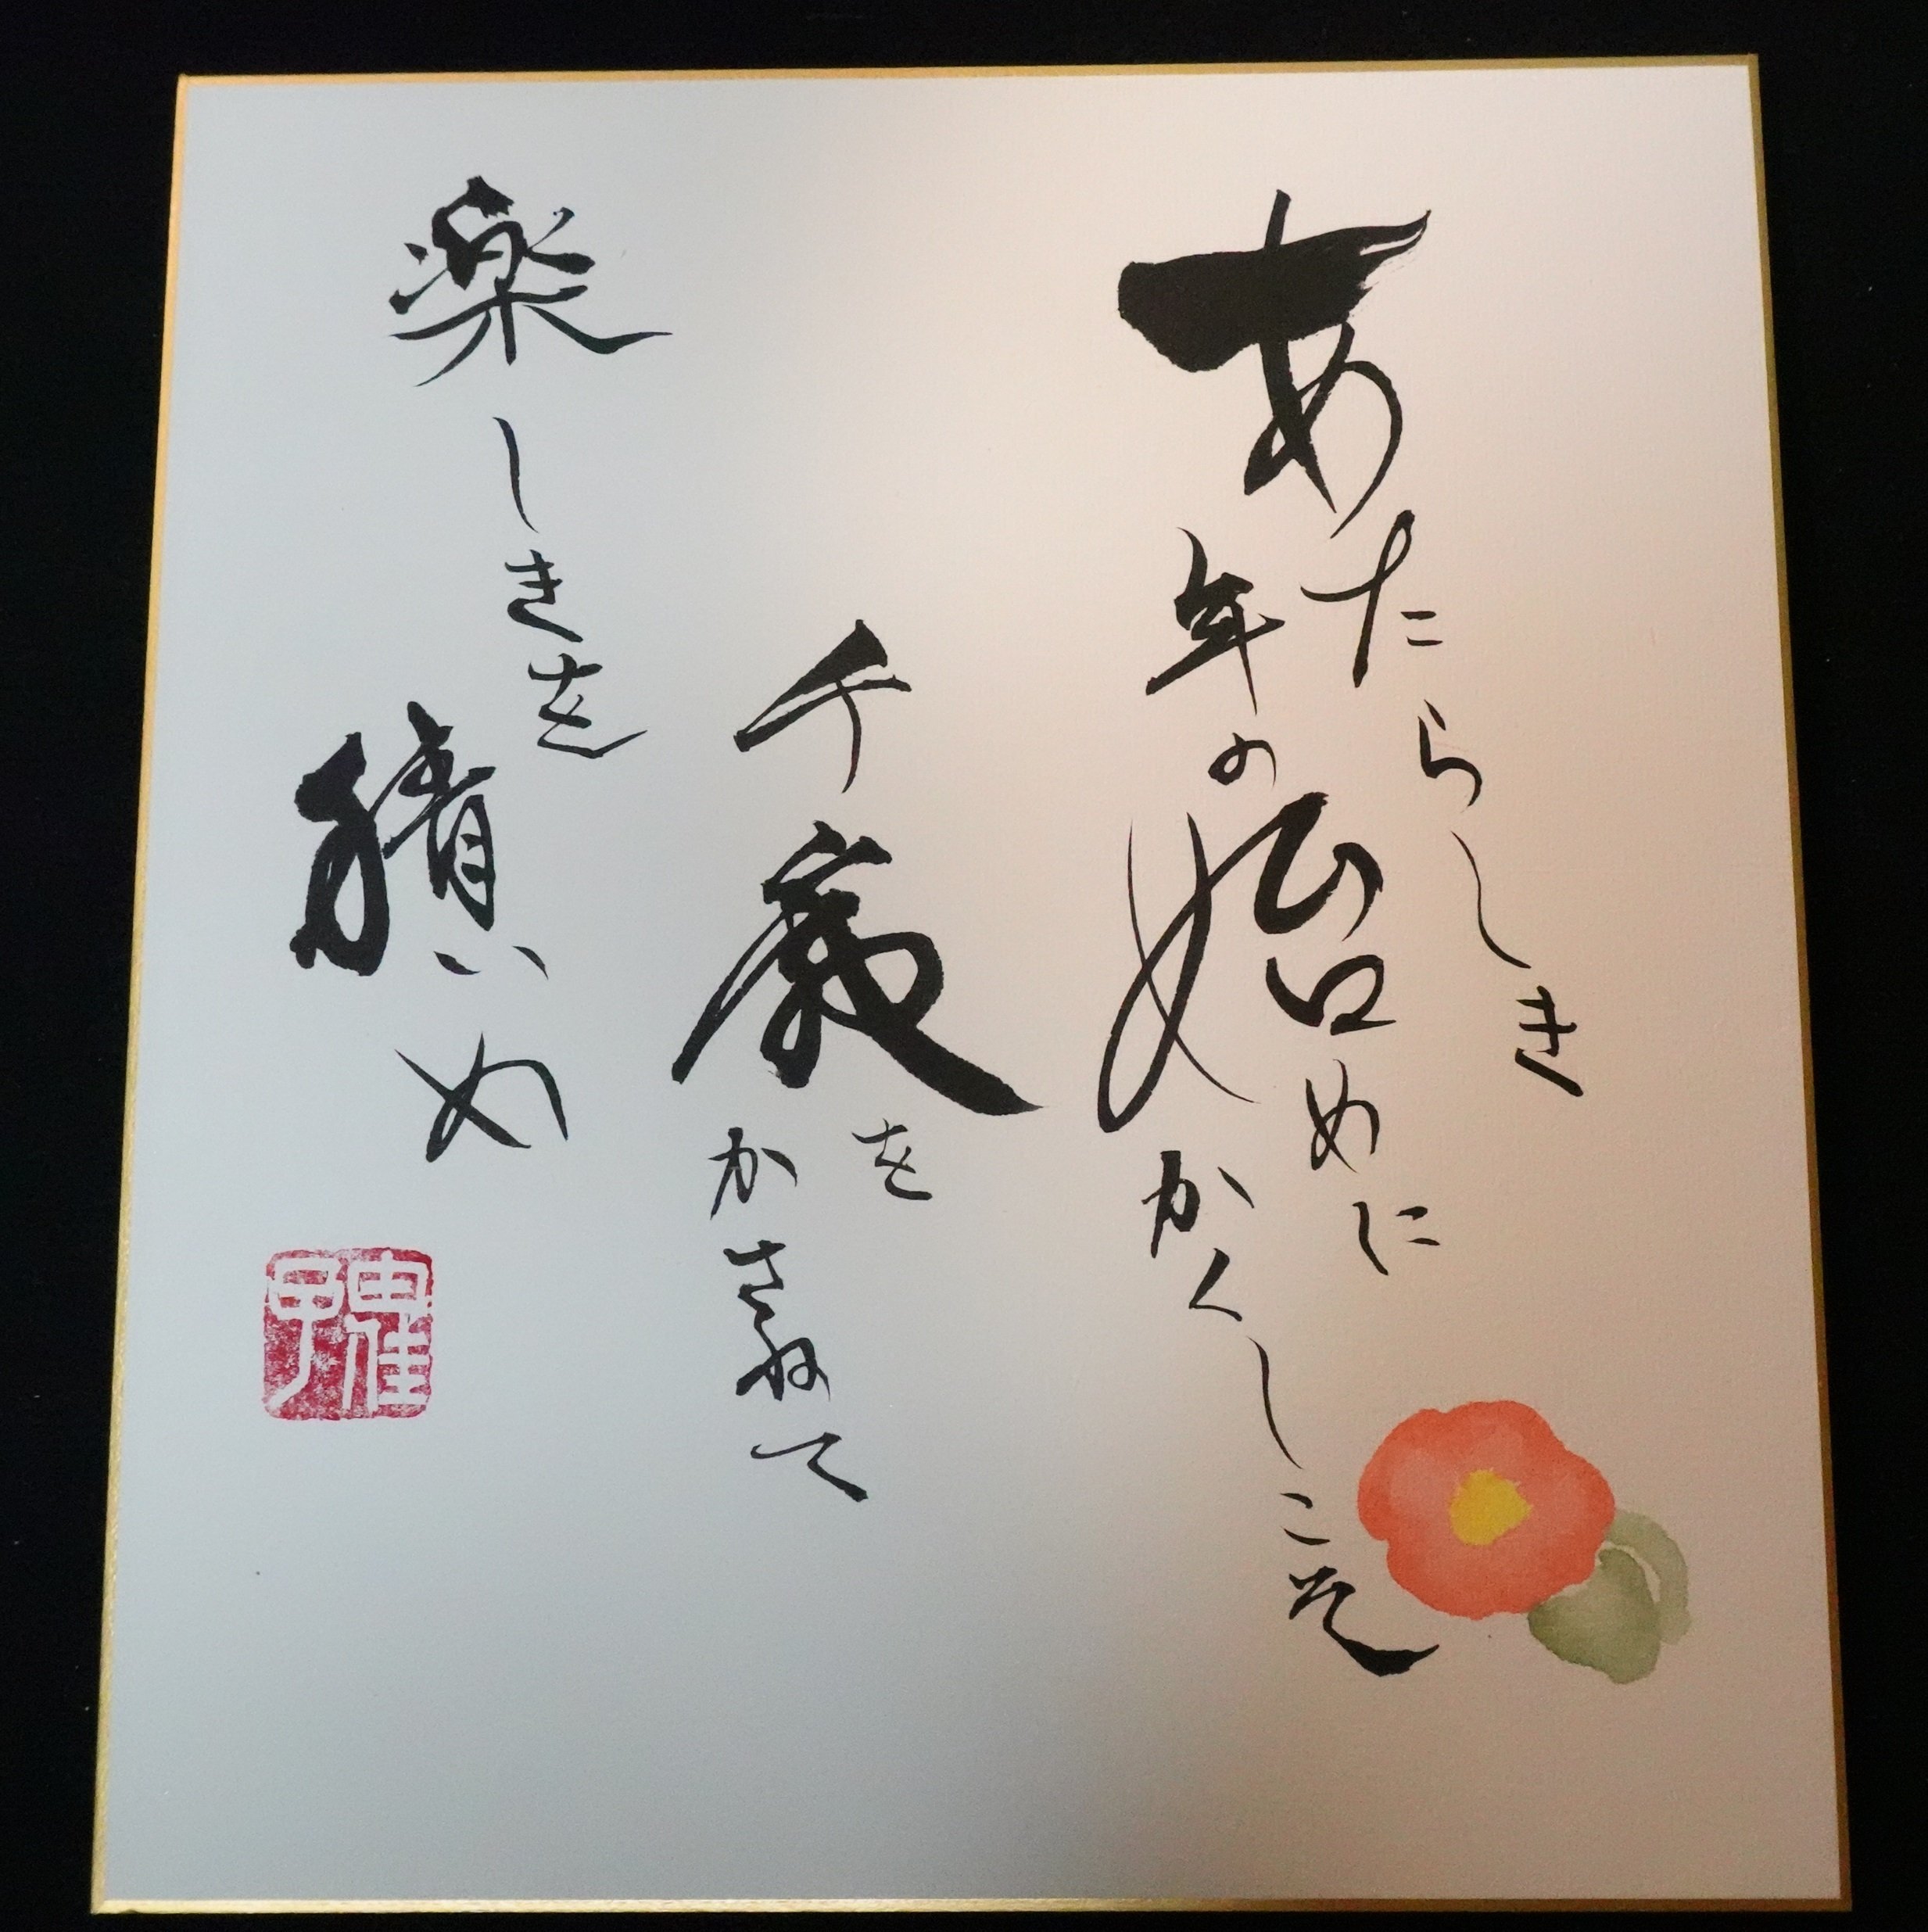 あたらしき
年の始めに
かくしこそ
千歳を
かさねて
楽しきを
積め